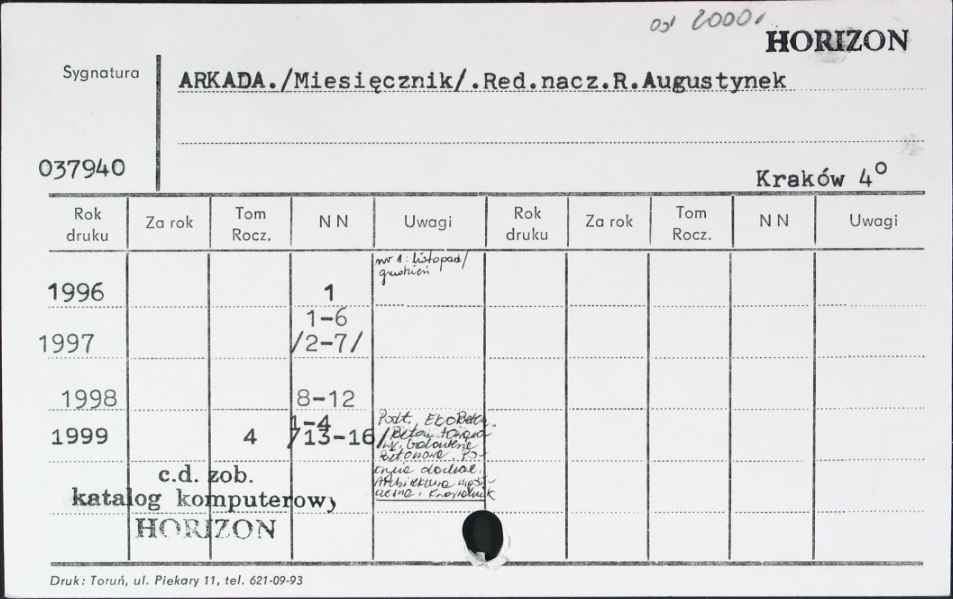 od 2000r
HORIZON
Sygnatura
ARKADA./Miesięcznik/.Red.nacz.R.Augustynek
037940
Kraków 4°
Rok druku Za rok Tom Rocz. N N Uwagi Rok druku Za rok Tom Rocz. N N Uwagi
nr 1: listopad/
grudzień
1996 1
1-6
1997 /2-7/
1998 8-12
1-4
1999 4 /13-16/
Podt.
c.d. zob.
katalog komputerowy
HORIZON
Druk: Toruń, ul. Piekary 11, tel. 621-09-93